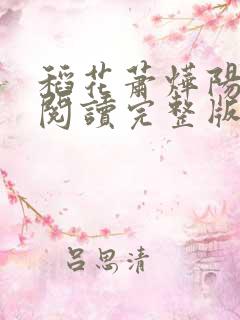 稻花蕭燁陽
閱讀完整版
呂思清